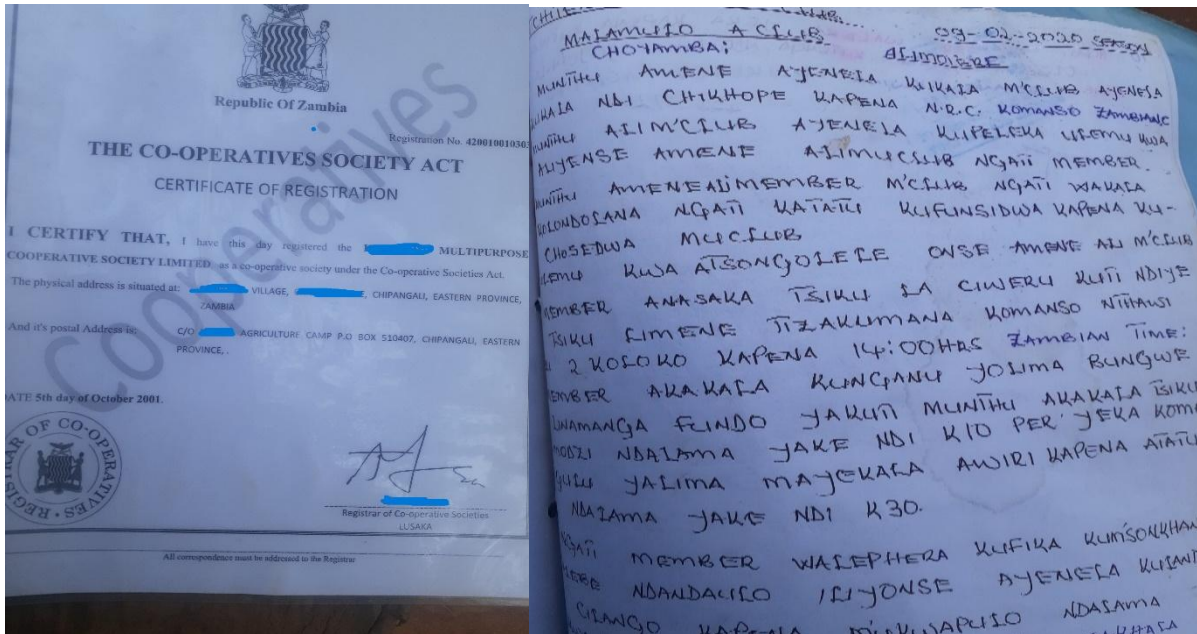 Republic Of Zambia
Registration No. 420010010303
THE CO-OPERATIVES SOCIETY ACT
CERTIFICATE OF REGISTRATION
I CERTIFY THAT, I have this day registered the MULTIPURPOSE
COOPERATIVE SOCIETY LIMITED, as a co-operative society under the Co-operative Societies Act.
The physical address is situated at: VILLAGE, CHIPANGALI, EASTERN PROVINCE,
ZAMBIA
And it's postal Address is: C/O AGRICULTURE CAMP P.O BOX 510407, CHIPANGALI, EASTERN
PROVINCE, .
DATE 5th day of October 2001.
Cooperatives
REGISTRAR OF CO-OPERATIVES
Registrar of Co-operative Societies
LUSAKA
All correspondence must be addressed to the Registrar
MALAMULO A CLUB 09-02-2020 SEASON
CHOYAMBA:
MUNTHU AMENE AYENELA KUKALA M'CLUB AYENELA
KUKALA NDI CHIKHOPE KAPENA N.R.C. KOMANSO ZAMBIANC
MUNTHU ALI M'CLUB AYENELA KUPELEKA ULEMU KWA
ALIYENSE AMENE ALIMUCLUB NGATI MEMBER
MUNTHU AMENEALIMEMBER M'CLUB NGATI WAKALA
KOLONDOLANA NGATI KATATU KUFUNSIDWA KAPENA KU-
CHOSEDWA MUCLUB
ULEMU KWA ATSONGOLELE ONSE AMENE ALI M'CLUB
MEMBER ANASAKA TSIKU LA CIWERU KUTI NDIYE
TSIKU LIMENE TIZAKUMANA KOMANSO NTHAWI
2 KOLOKO KAPENA 14:00HRS ZAMBIAN TIME:
MEMBER AKAKALA KUNGANU YOLIMA BUNGWE
FUNDO YAKUTI MUNTHU AKAKALA TSIKU
MODZI NDALAMA YAKE NDI K10 PER YEKA
YALIMA MAYEKALA AWIRI KAPENA ATATU
NDALAMA YAKE NDI K30.
NGATI MEMBER WALEPHERA KUFIKA
NDANDAULO ILIYONSE AYENELA
KAPENA NDALAMA